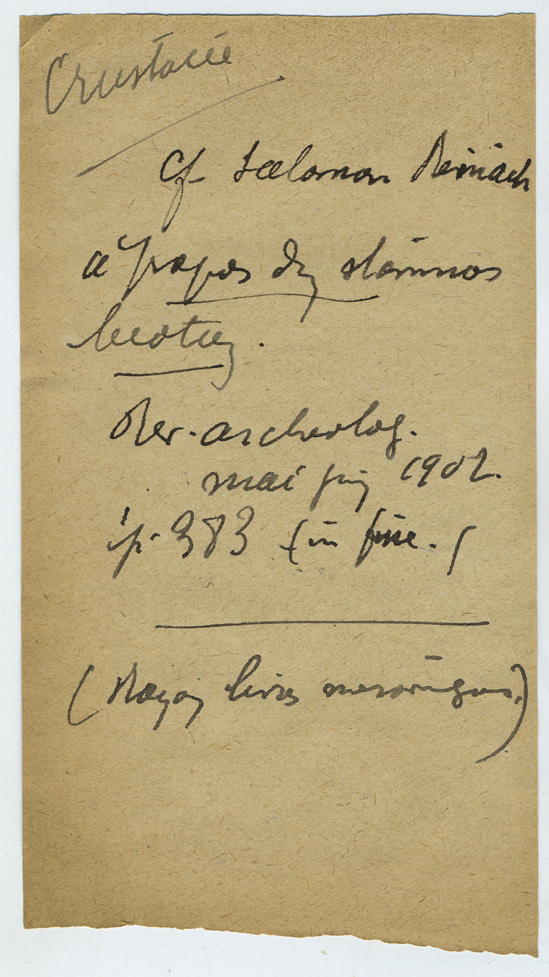 Crustacée
Cf Salomon Reinach
à propos du stamnos
beotien.
Rev. archeolog.
mai juin 1902.
p. 383 (in fine. (
(Rayon livres merovingiens.)